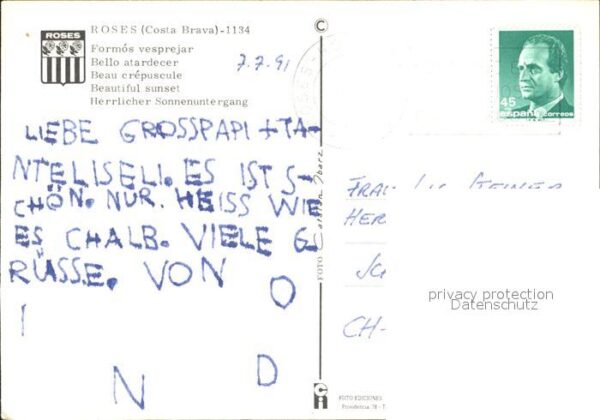 ROSES (Costa Brava)-1134
ROSES
Formós vesprejar
Bello atardecer
Beau crépuscule
Beautiful sunset
Herrlicher Sonnenuntergang
7.7.91
LIEBE GROSSPAPI + TA-
NTELISELI. ES IST S-
CHÖN. NUR. HEISS WIE
ES CHALB. VIELE G
RÜSSE. VON O
I
N D
FOTO
FOTO EDICIONES
45
españa correos
FRAU
HER
CH-
privacy protection
Datenschutz